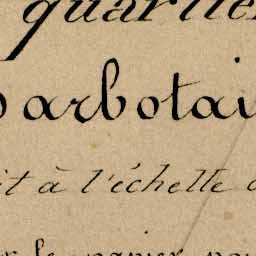 quartier
Barbotai
it à l'échelle d
le papier pou